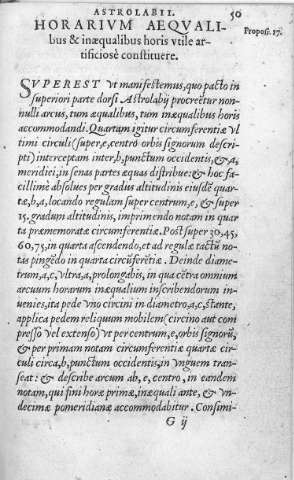 ASTROLABII.
50
HORARIVM AEQVALI-
Propos. 17.
bus & inæqualibus horis vtile ar-
tificiosè constituere.
SVPEREST vt manifestemus, quo pacto in
superiori parte dorsi Astrolabij procreẽtur non-
nulli arcus, tum æqualibus, tum inæqualibus horis
accommodandi. Quartam igitur circumferentiæ vl
timi circuli (super, e, centrō orbis signorum descri-
pti) interceptam inter, b, punctum occidentis, & a,
meridiei, in senas partes æquas distribue: & hoc fa-
cillimè absolues per gradus altitudinis eiusdē quar-
tæ, b, a, locando regulam super centrum, e, & super
15. gradum altitudinis, imprimendo notam in quar
ta præmemoratæ circumferentiæ. Post super 30, 45,
60, 75, in quarta ascendendo, et ad regulæ tactũ no-
tas pingẽdo in quarta circũferẽtiæ. Deinde diame-
trum, a, c, vltra, a, prolongabis, in qua cẽtra omnium
arcuum horarum inæqualium inscribendorum in-
uenies, ita pede vno circini in diametro, a, c, stante,
applica pedem reliquum mobilem (circino aut com
presso vel extenso) vt per centrum, e, orbis signorũ,
& per primam notam circumferentiæ quartæ cir-
culi circa, b, punctum occidentis, in vnguem tran-
seat: & describe arcum ab, e, centro, in eandem
notam, qui fini horæ primæ, inæquali ante, & vn-
decimæ pomeridianæ accommodabitur. Consimi-
G ij